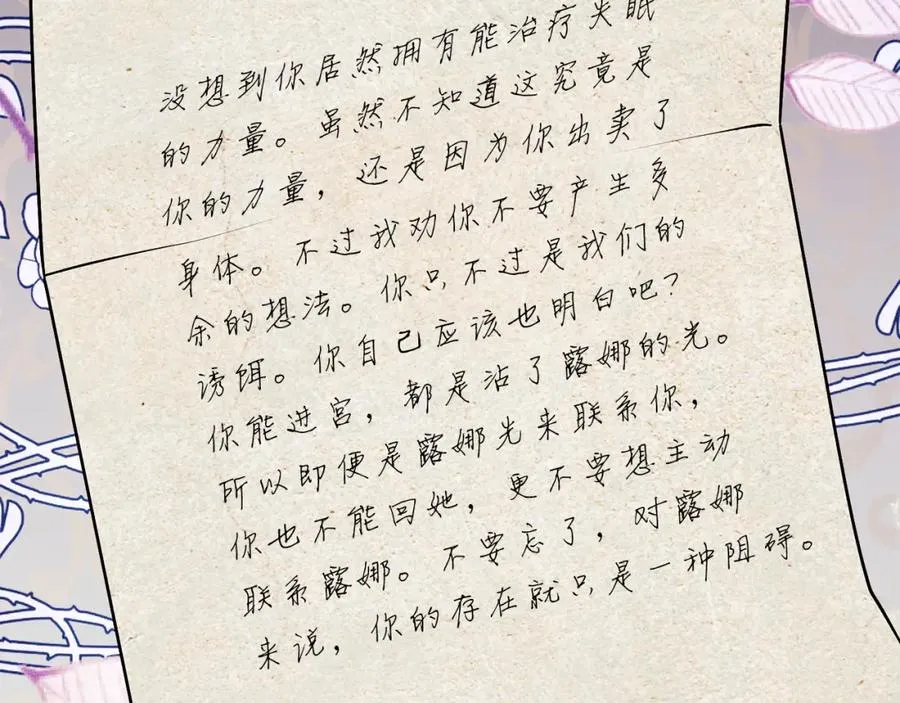 没想到你居然拥有能治疗失眠
的力量。虽然不知道这究竟是
你的力量，还是因为你出卖了
身体。不过我劝你不要产生多
余的想法。你只不过是我们的
诱饵。你自己应该也明白吧？
你能进宫，都是沾了露娜的光。
所以即便是露娜先来联系你，
你也不能回她，更不要想主动
联系露娜。不要忘了，对露娜
来说，你的存在就只是一种阻碍。